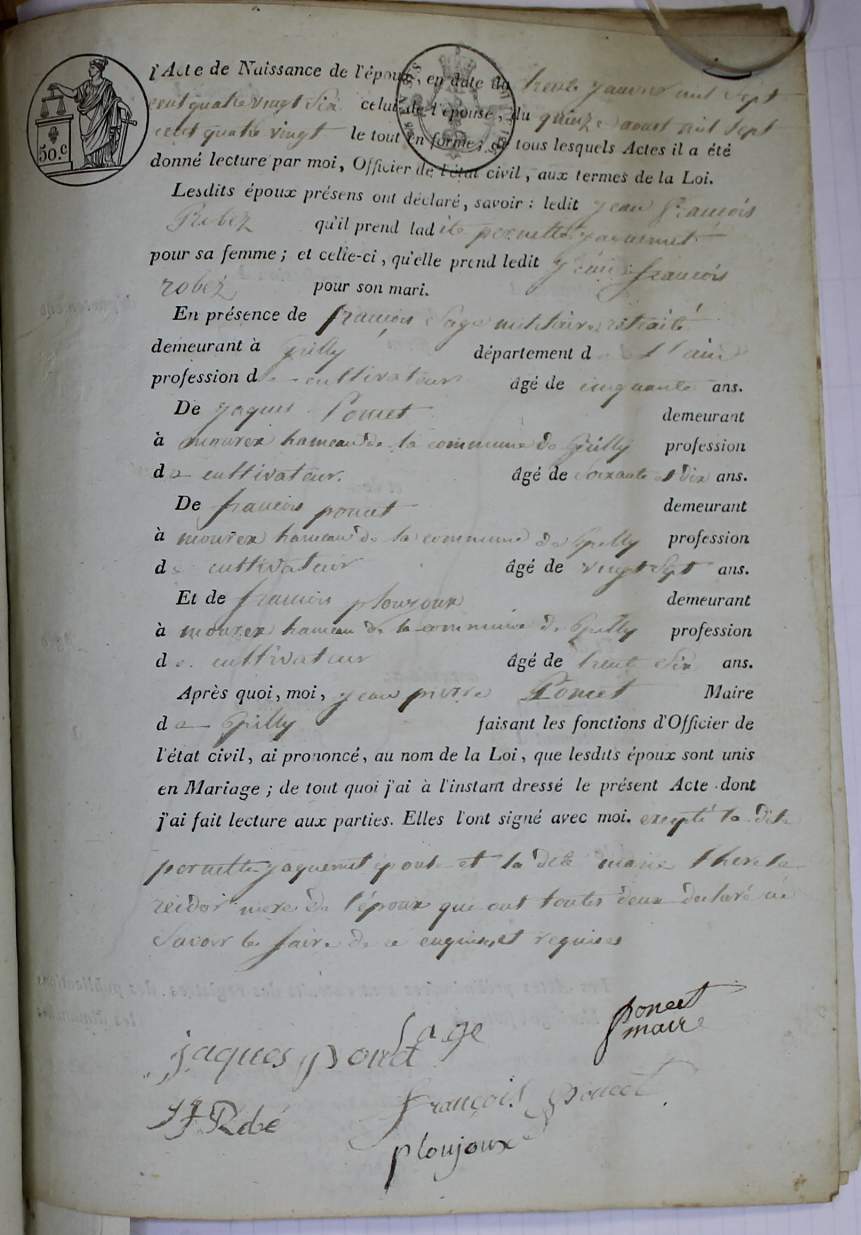 50.c
l'Acte de Naissance de l'époux, en date du trente janvier mil sept
cent quatre vingt six celui de l'épouse, du quinze aoust mil sept
cent quatre vingt le tout en forme; de tous lesquels Actes il a été
donné lecture par moi, Officier de l'état civil, aux termes de la Loi.
Lesdits époux présens ont déclaré, savoir: ledit jean françois
Robez qu'il prend ladite pernette jaquemet
pour sa femme; et celle-ci, qu'elle prend ledit jean françois
robez pour son mari.
En présence de françois Sage militaire retraité
demeurant à Grilly département de l'ain
profession de cultivateur âgé de cinquante ans.
De jaques Poncet demeurant
à mourex hameau de la commune de Grilly profession
de cultivateur. âgé de soixante et dix ans.
De françois poncet demeurant
à mourex hameau de la commune de Grilly profession
de cultivateur âgé de vingt sept ans.
Et de françois ploujoux demeurant
à mourex hameau de la commune de Grilly profession
de cultivateur âgé de trente six ans.
Après quoi, moi, jean pierre Poncet Maire
de Grilly faisant les fonctions d'Officier de
l'état civil, ai prononcé, au nom de la Loi, que lesdits époux sont unis
en Mariage; de tout quoi j'ai à l'instant dressé le présent Acte dont
j'ai fait lecture aux parties. Elles l'ont signé avec moi. excepté la dite
pernette jaquemet épouse et la dite marie
mere de l'époux que ont toutes deux declaré ne
savoir le faire de ce enquises et requises
Poncet
maire
Sage
jaques poncet
françois poncet
JF Robé
ploujoux